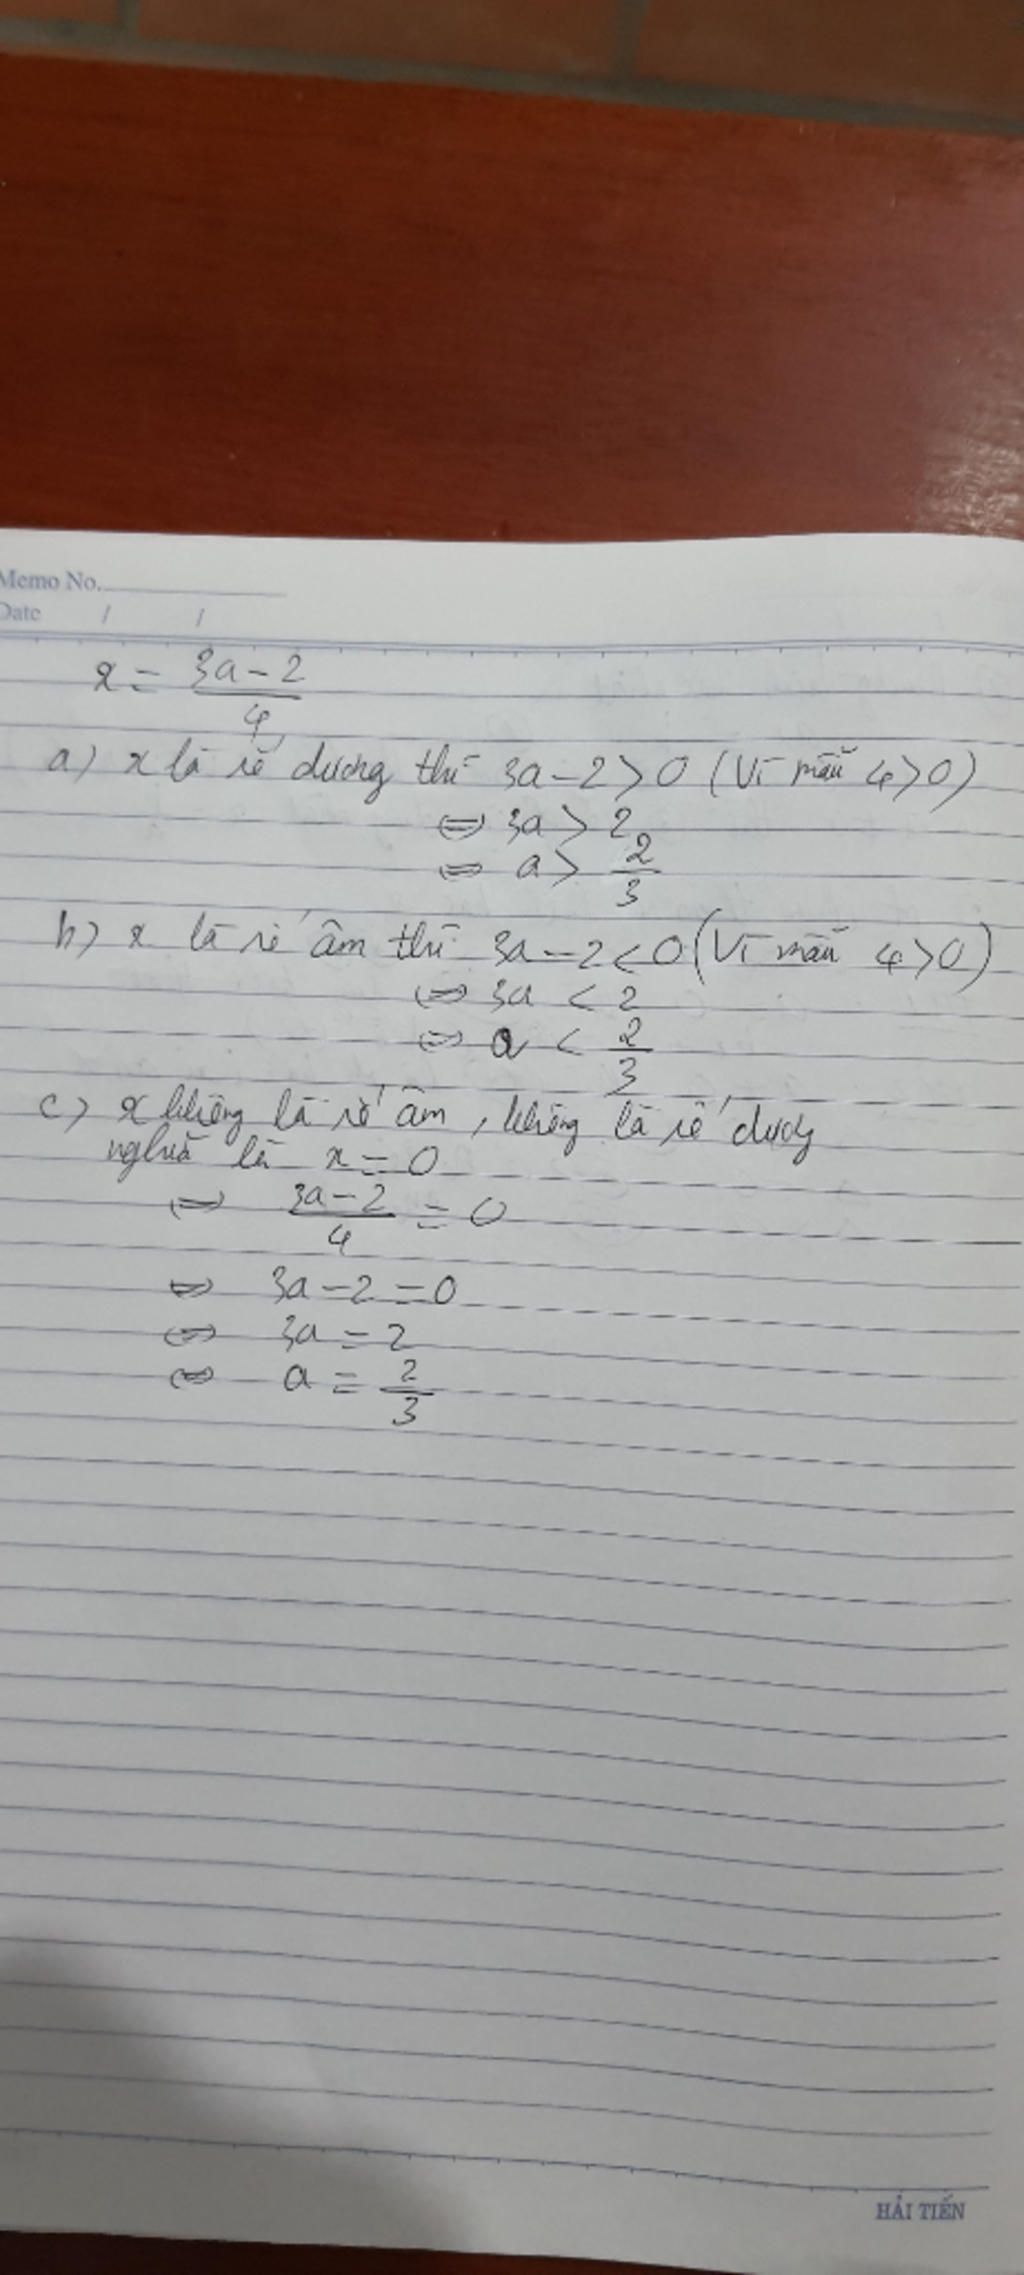 Memo No.
Date / /
x = \frac{3a-2}{4}
a) x là số dương thì 3a-2>0 (Vì mẫu 4>0)
⇔ 3a > 2
⇔ a > \frac{2}{3}
b) x là số âm thì 3a-2<0 (Vì mẫu 4>0)
⇔ 3a < 2
⇔ a < \frac{2}{3}
c) x không là số âm, không là số dương
nghĩa là x = 0
⇔ \frac{3a-2}{4} = 0
⇔ 3a-2 = 0
⇔ 3a = 2
⇔ a = \frac{2}{3}
HẢI TIẾN